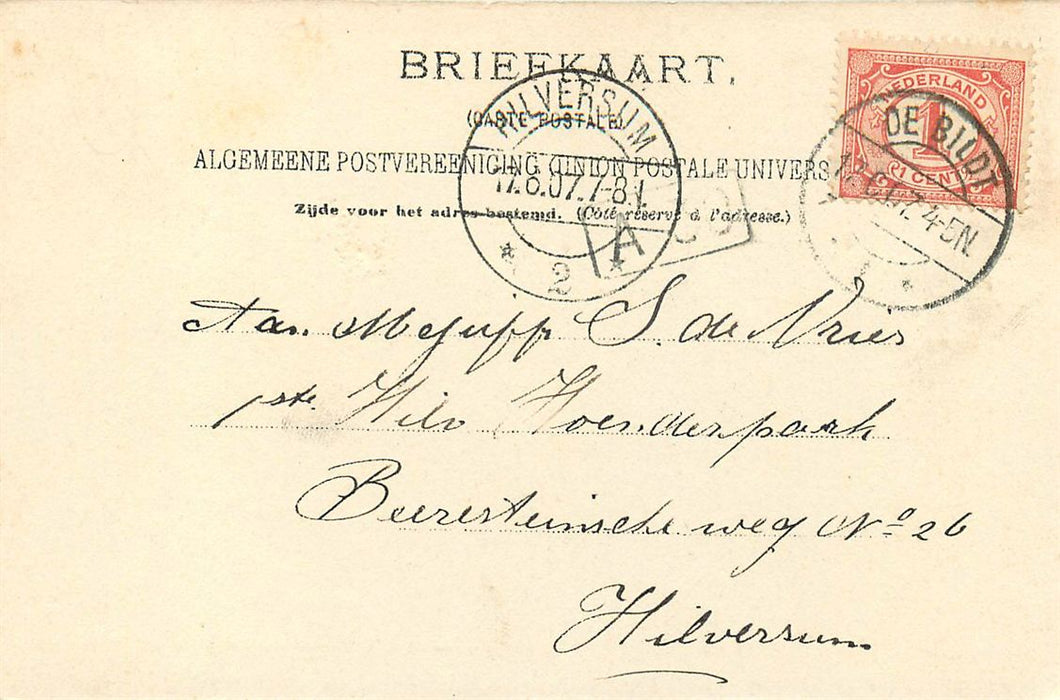 BRIEFKAART.
(CARTE POSTALE)
ALGEMEENE POSTVEREENIGING (UNION POSTALE UNIVERS
Zijde voor het adres bestemd. (Côté réservé à l'adresse.)
NEDERLAND
1
1 CENT
DE BILDT
4-5N
1
HILVERSUM
17.6.07.7-8V.
2
A
Aan Mejuffr S. de Vries
1ste Hilv Hoenderpark
Beeresteinsche weg No 26
Hilversum